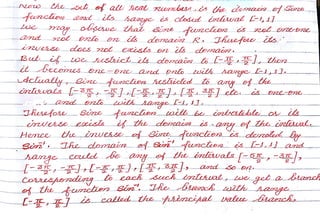 now the set of all real number is the domain of Sine
function and its range is closed interval [-1,1]
we may observe that Sine function is not one-one
and not onto on its domain R. Therefore its
inverse does not exists on its domain.
But if we restrict its domain to [-π/2, π/2], then
it becomes one-one and onto with range [-1,1].
Actually, Sine function restricted to any of the
intervals [-3π/2, -π/2], [-π/2, π/2], [π/2, 3π/2] etc. is one-one
and onto with range [-1,1].
Therefore Sine function will be invertible or its
inverse exists if the domain is any of the interval.
Hence the inverse of Sine function is denoted by
Sin⁻¹. The domain of Sin⁻¹ function is [-1,1] and
range could be any of the intervals
[-3π/2, -π/2], [-π/2, π/2], [π/2, 3π/2], and so on.
Corresponding to each such interval, we get a branch
of the function Sin⁻¹. The branch with range
[-π/2, π/2] is called the principal value branch,